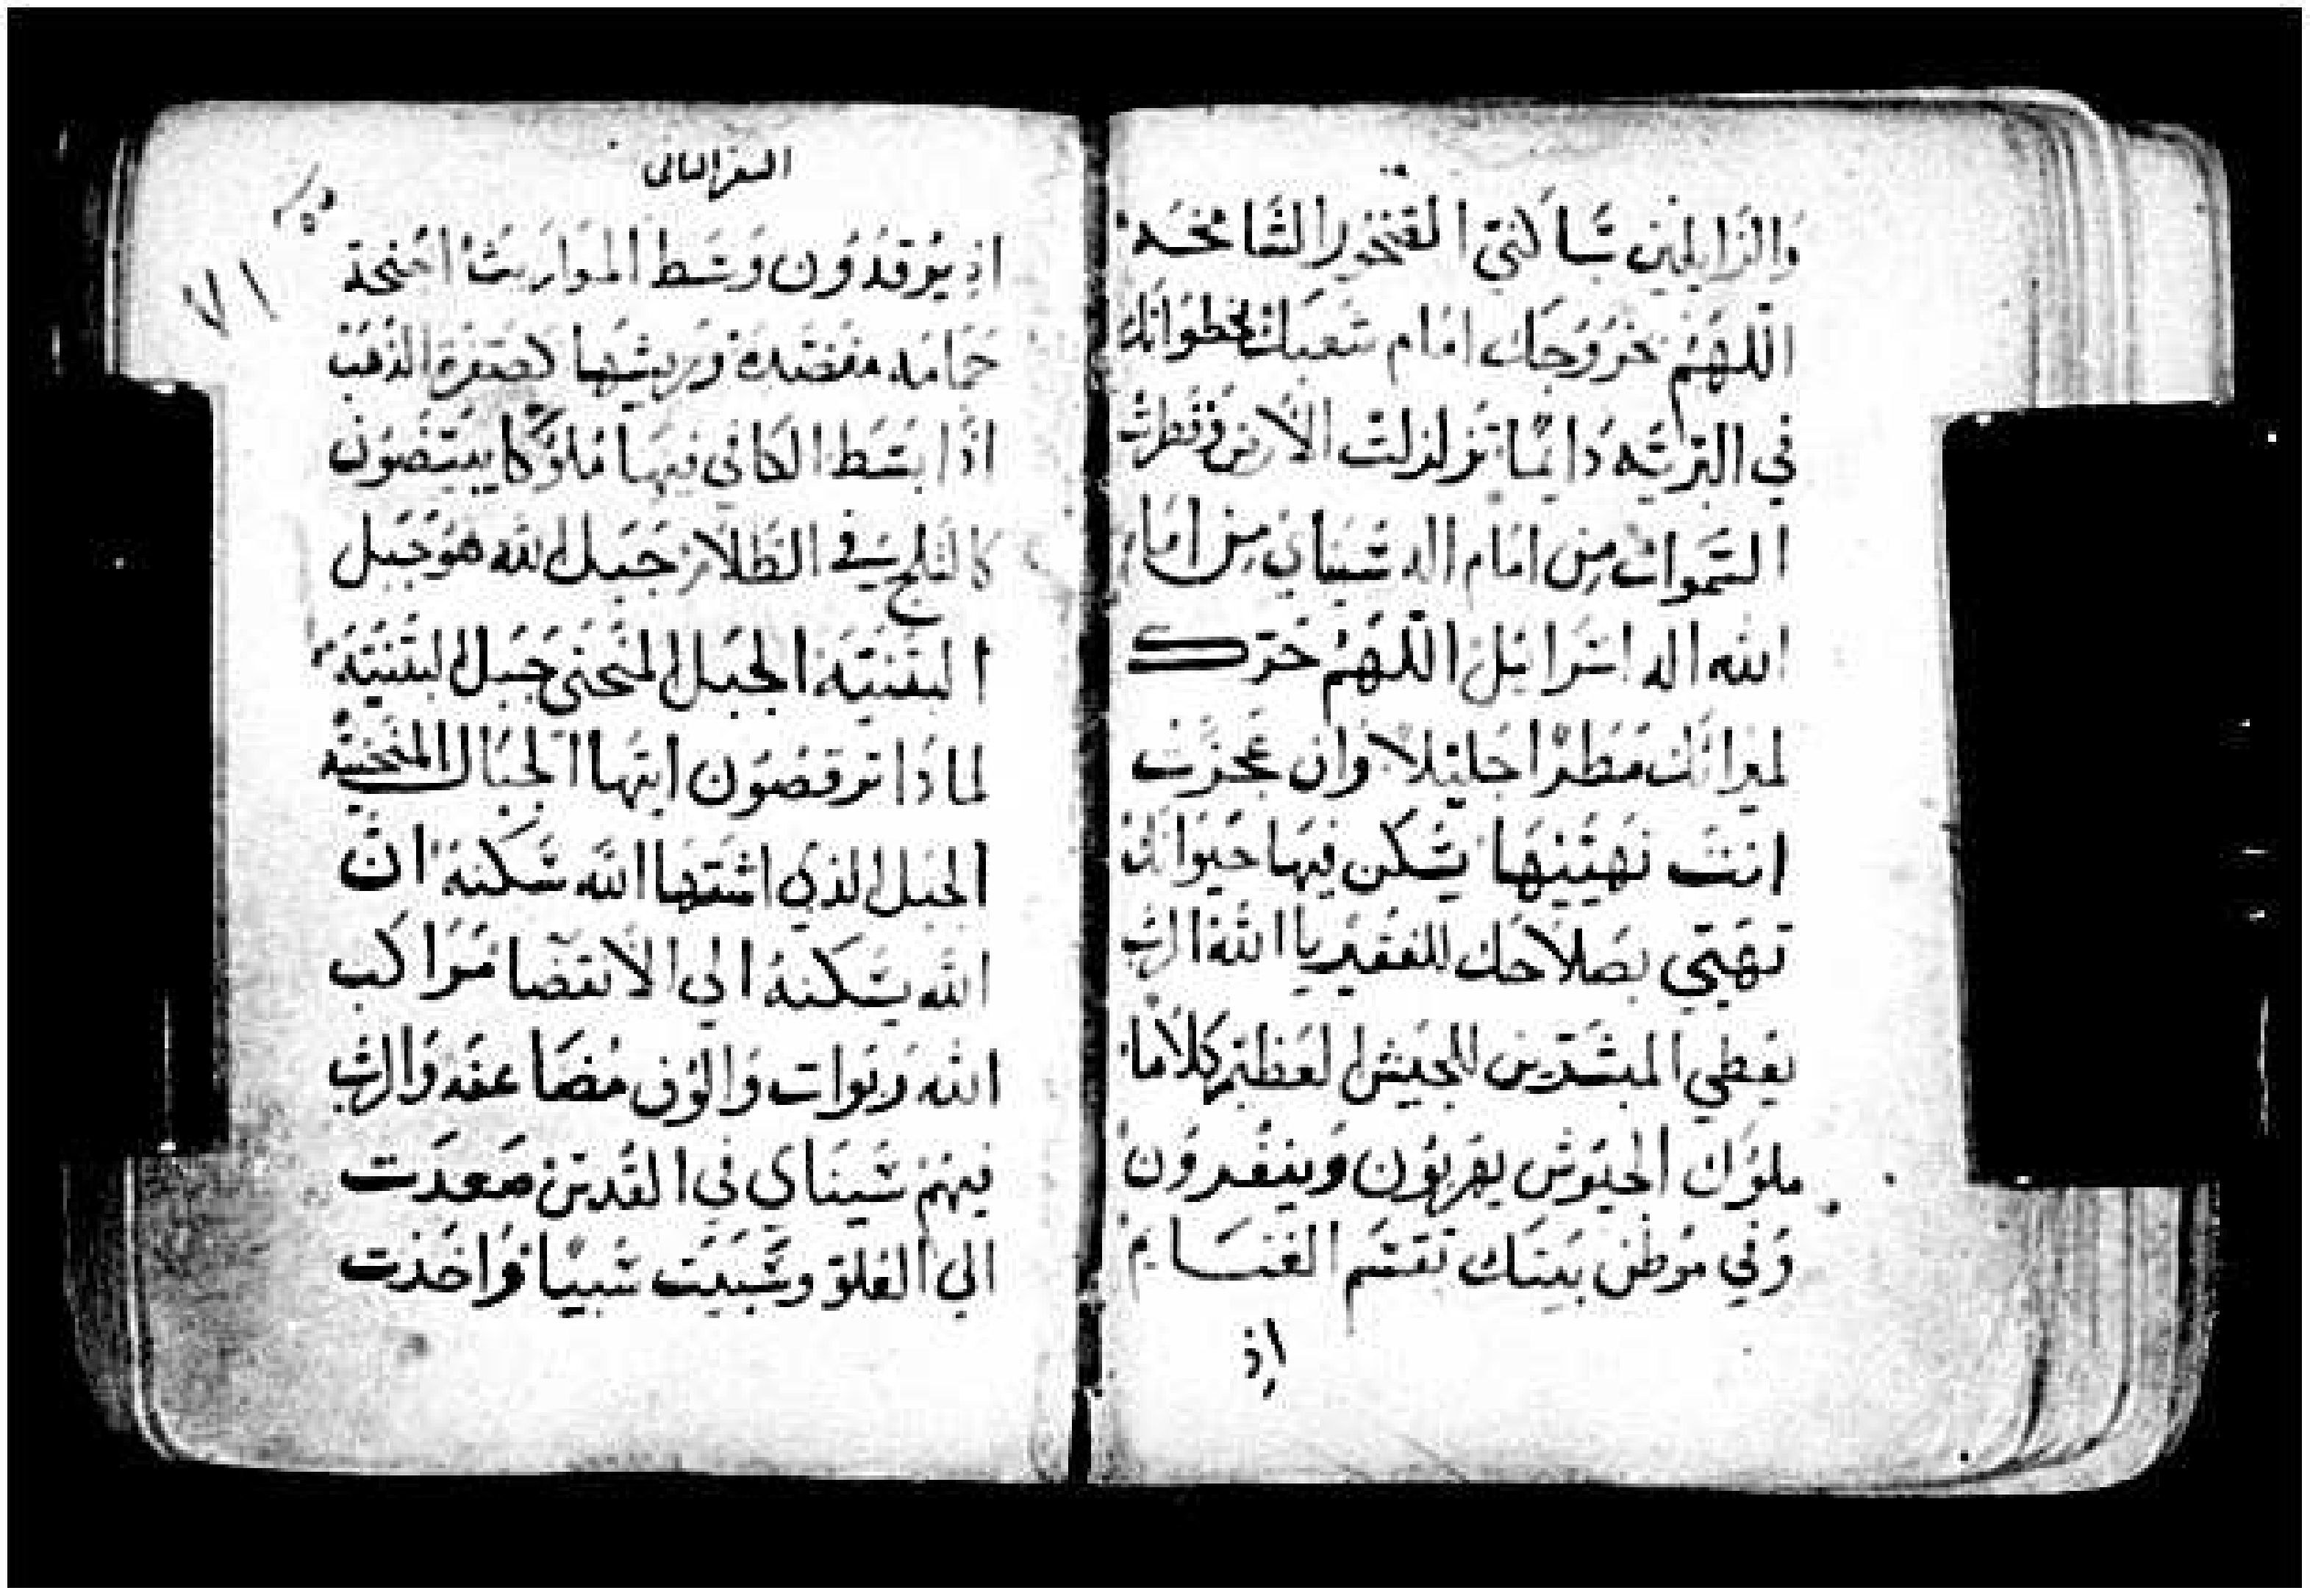 والزايلين ساكني القحور الشامخه
اللهم خروجك امام شعبك بخطواتك
في البريه دايمًا تزلزلت الارض وقطرت
السموات من امام اله سيناي من امام
الله اله اسرائيل اللهم حرك
لميراثك مطرا جليلا وان عجزت
انت تهيئها يسكن فيها حيواتك
تهيي بصلاحك للفقير يا الله الرب
يعطي المبشرين للجيش العظيم كلاما
ملوك الجيوش يهربون وينفرون
وفي موطن بيتك تقتسم الغنايم
اذ
السفر الثاني
٧١
اذ يرقدون وسط المواريث اجنحة
حمامه مفضضه وريشها كصفرة الذهب
اذا بسط الكاين فيها ملوكا يبيضون
كالثلج في الظلال جبل الله هو جبل
البقنية الجبل المنحني جبل البقنية
لماذا ترقصون ايتها الجبال المنحنية
الجبل الذي اشتها الله سكنه ان
الله يسكنه الي الانقضا مراكب
الله ربوات والوف مضاعفه والرب
فيهم سيناي في القدس صعدت
الي العلو وسبيت سبيا واخذت